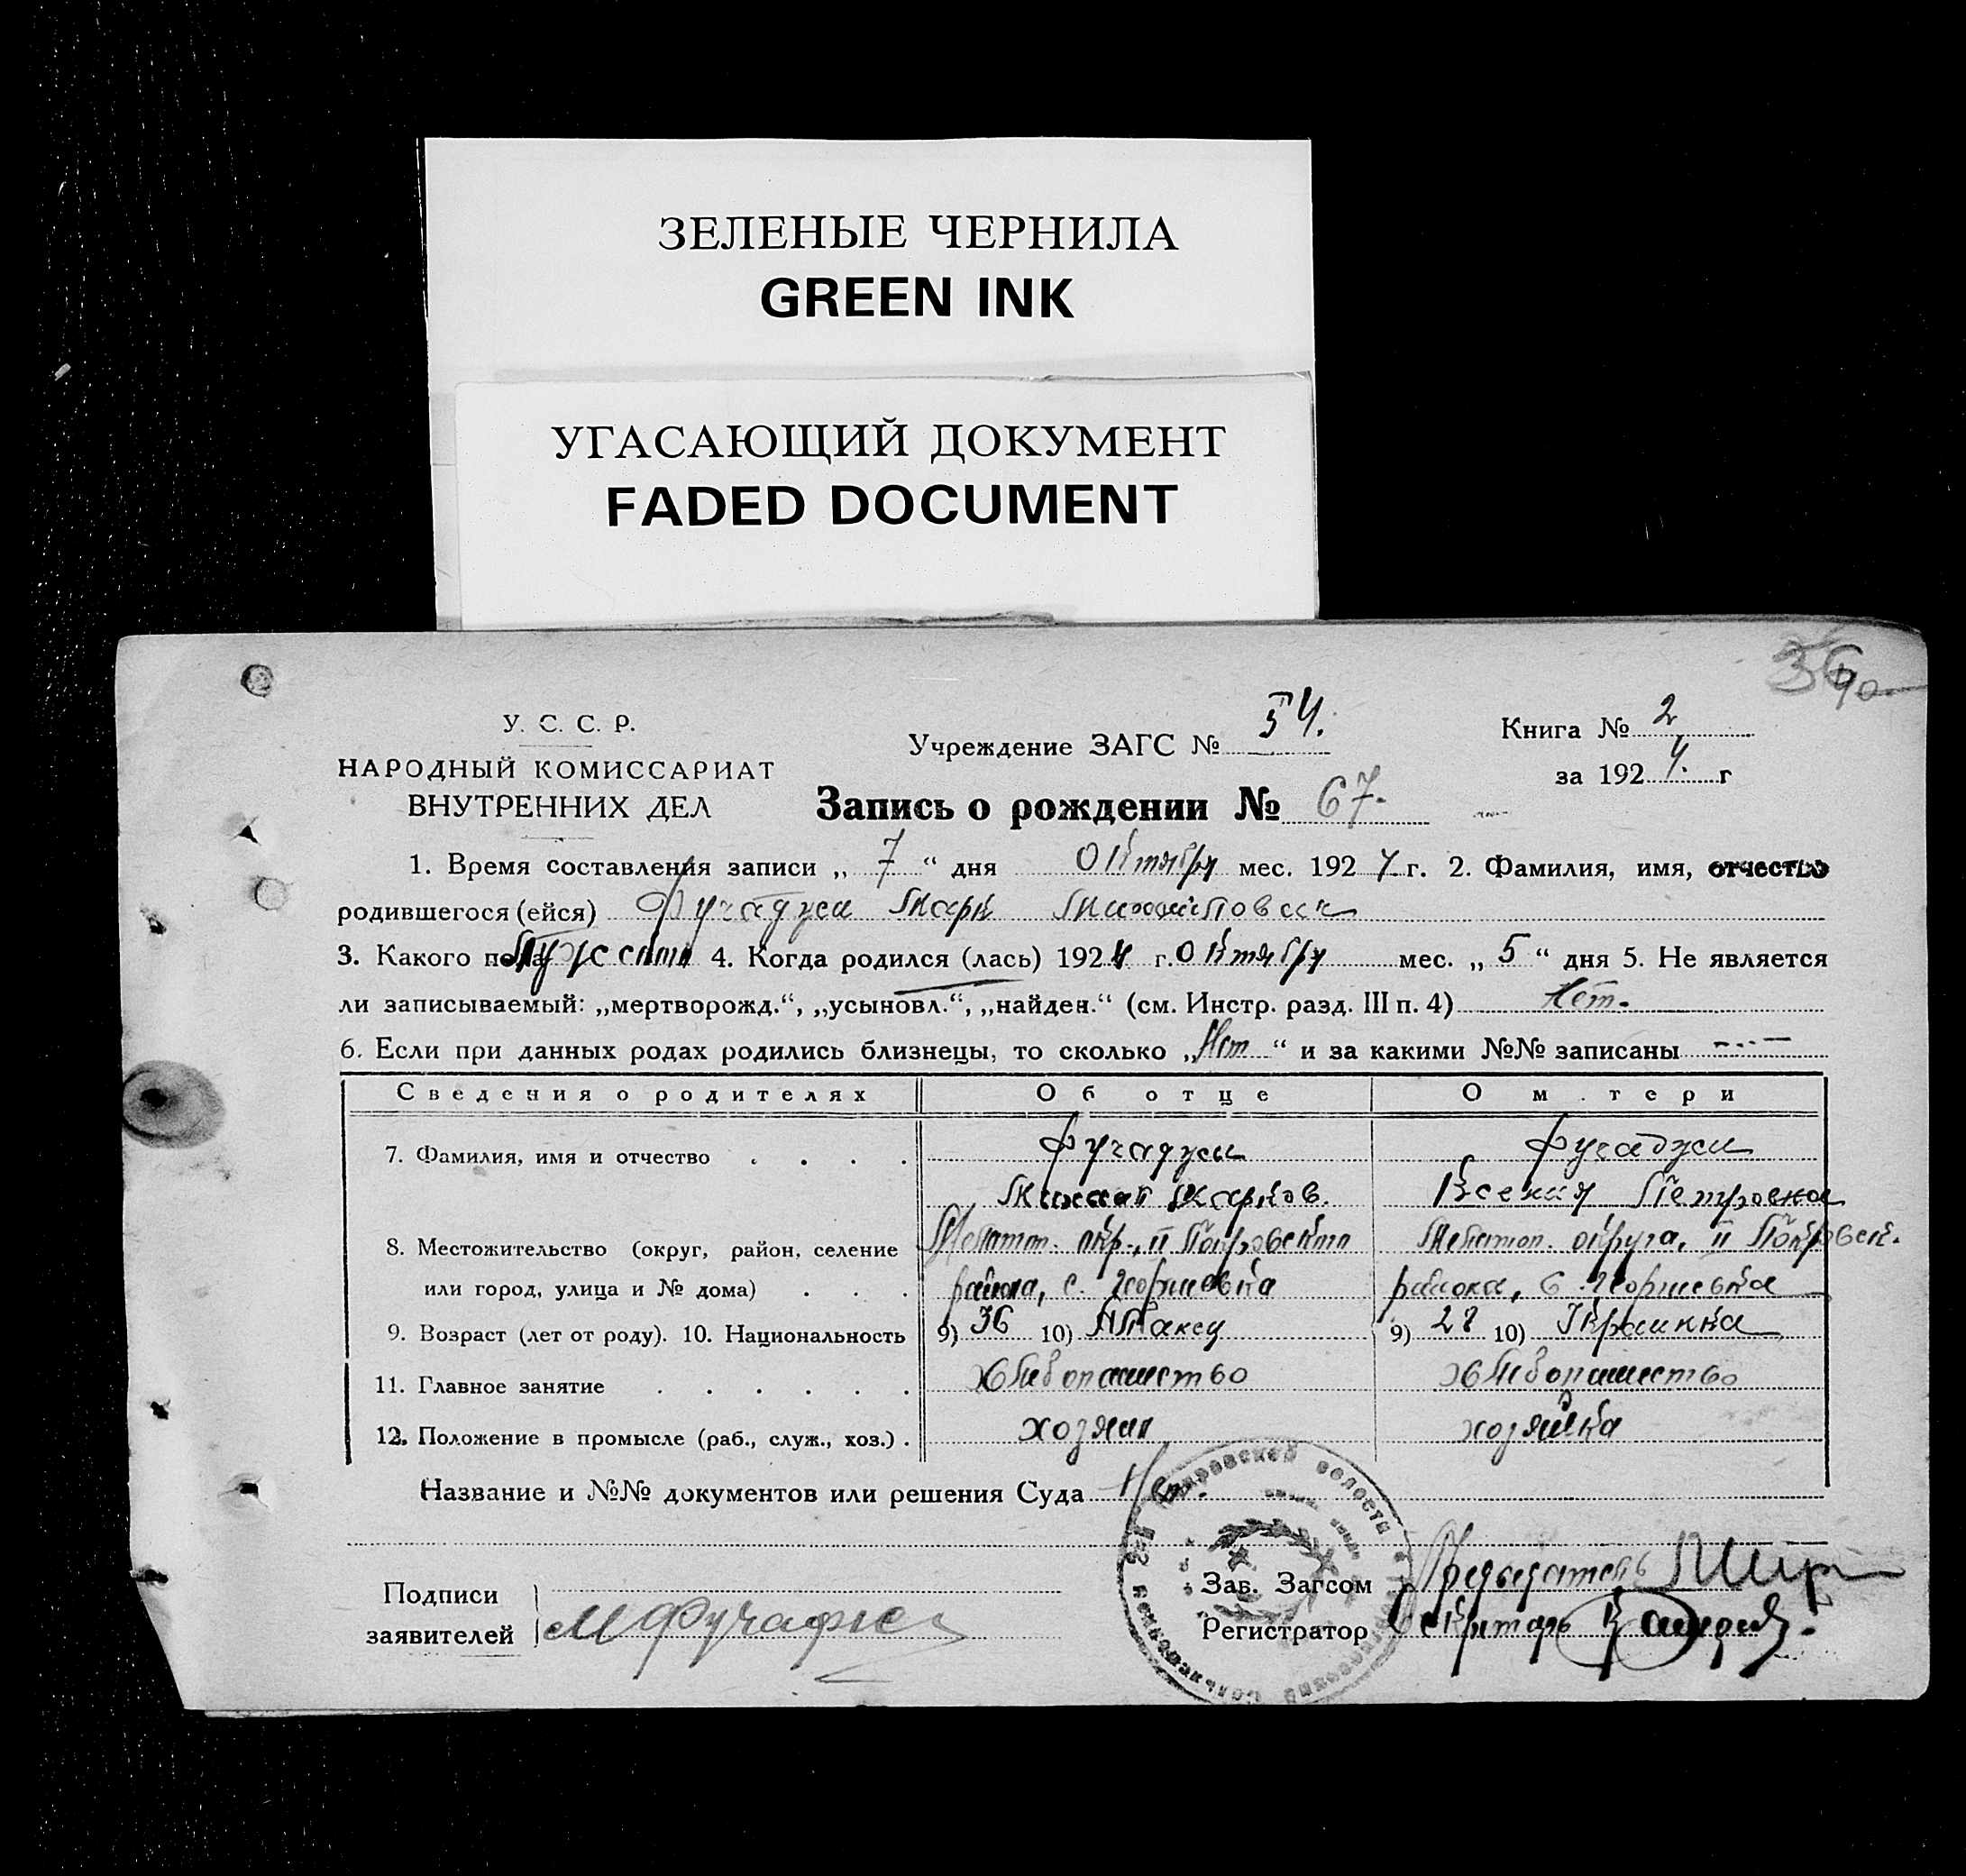 ЗЕЛЕНЫЕ ЧЕРНИЛА
GREEN INK
УГАСАЮЩИЙ ДОКУМЕНТ
FADED DOCUMENT
У. С. С. Р.
НАРОДНЫЙ КОМИССАРИАТ
ВНУТРЕННИХ ДЕЛ
Учреждение ЗАГС № 54.
Книга № 2
за 1924. г
Запись о рождении № 67.
1. Время составления записи „ 7 “ дня Октября мес. 1924 г. 2. Фамилия, имя, отчество
родившегося (ейся) Фучаджи Марк
3. Какого пола Мужского 4. Когда родился (лась) 1924 г. Октября мес. „ 5 “ дня 5. Не является
ли записываемый: „мертворожд.“, „усыновл.“, „найден.“ (см. Инстр. разд. III п. 4) Нет.
6. Если при данных родах родились близнецы, то сколько „Нет“ и за какими №№ записаны
Сведения о родителях Об отце О м тери
7. Фамилия, имя и отчество Фучаджи Фучаджи
Михаил Марков. Ксения Петровна
8. Местожительство (округ, район, селение Мелитоп. окр., II Покровского Мелитоп. округа, II Покровск.
или город, улица и № дома) района, с. Георгиевка района, с. Георгиевка
9. Возраст (лет от роду). 10. Национальность 9) 36 10) 9) 28 10) Украинка
11. Главное занятие Хлебопашество Хлебопашество
12. Положение в промысле (раб., служ., хоз.) хозяин хозяйка
Название и №№ документов или решения Суда Нет.
Подписи
заявителей М Фучаджи
Зав. Загсом Председатель
Регистратор Секритарь